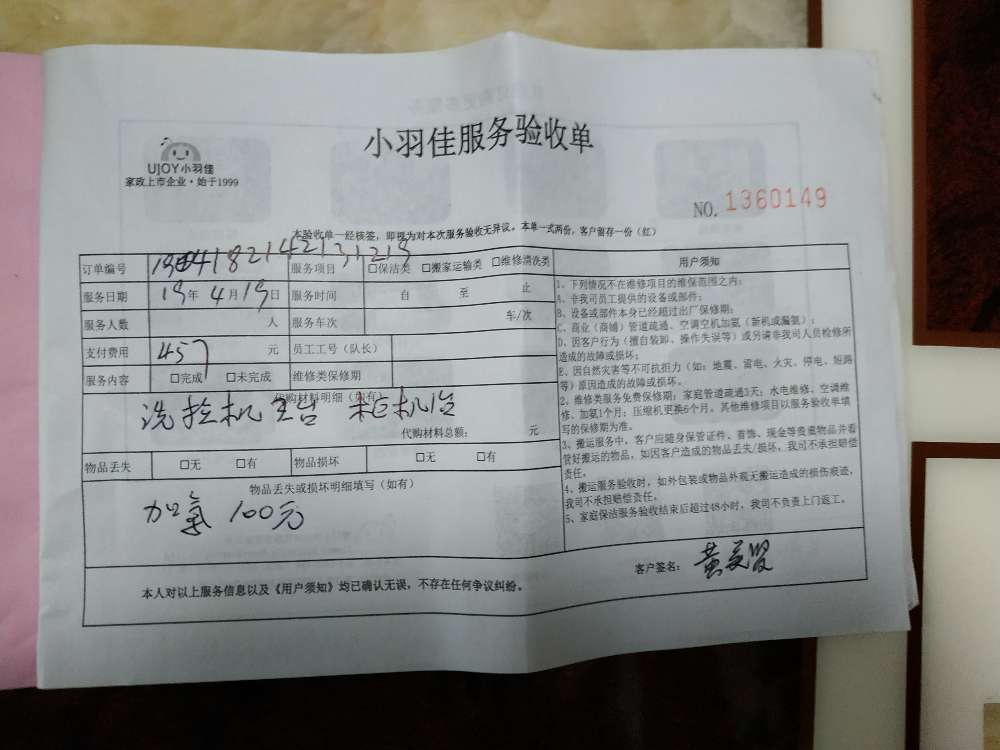 小羽佳服务验收单
UJOY小羽佳
家政上市企业·始于1999
NO. 1360149
本验收单一经核签，即视为对本次服务验收无异议。本单一式两份，客户留存一份（红）
订单编号 服务项目 □保洁类 □搬家运输类 □维修清洗类
服务日期 19年4月19日 服务时间 自 至 止
服务人数 人 服务车次 车/次
支付费用 457 元 员工工号（队长）
服务内容 □完成 □未完成 维修类保修期
代购材料明细（如有）
洗挂机 柜机1台
代购材料总额： 元
物品丢失 □无 □有 物品损坏 □无 □有
物品丢失或损坏明细填写（如有）
加氟 100元
用户须知
1、下列情况不在维修项目的维保范围之内：
A、非我司员工提供的设备或部件；
B、设备或部件本身已经超过出厂保修期；
C、商业（商铺）管道疏通、空调空机加氨（新机或漏氨）；
D、因客户行为（擅自装卸、操作失误等）或另请非我司人员检修所
造成的故障或损坏；
E、因自然灾害等不可抗拒力（如：地震、雷电、火灾、停电、短路
等）原因造成的故障或损坏。
2、维修类服务免费保修期：家庭管道疏通3天；水电维修、空调维
修、加氨1个月；压缩机更换6个月。其他维修项目以服务验收单填
写的保修期为准。
3、搬运服务中，客户应随身保管证件、首饰、现金等贵重物品并看
管好搬运的物品，如因客户造成的物品丢失/损坏，我司不承担赔偿
责任。
4、搬运服务验收时，如外包装或物品外观无搬运造成的损伤痕迹，
我司不承担赔偿责任。
5、家庭保洁服务验收结束后超过48小时，我司不负责上门返工。
本人对以上服务信息以及《用户须知》均已确认无误，不存在任何争议纠纷。
客户签名：